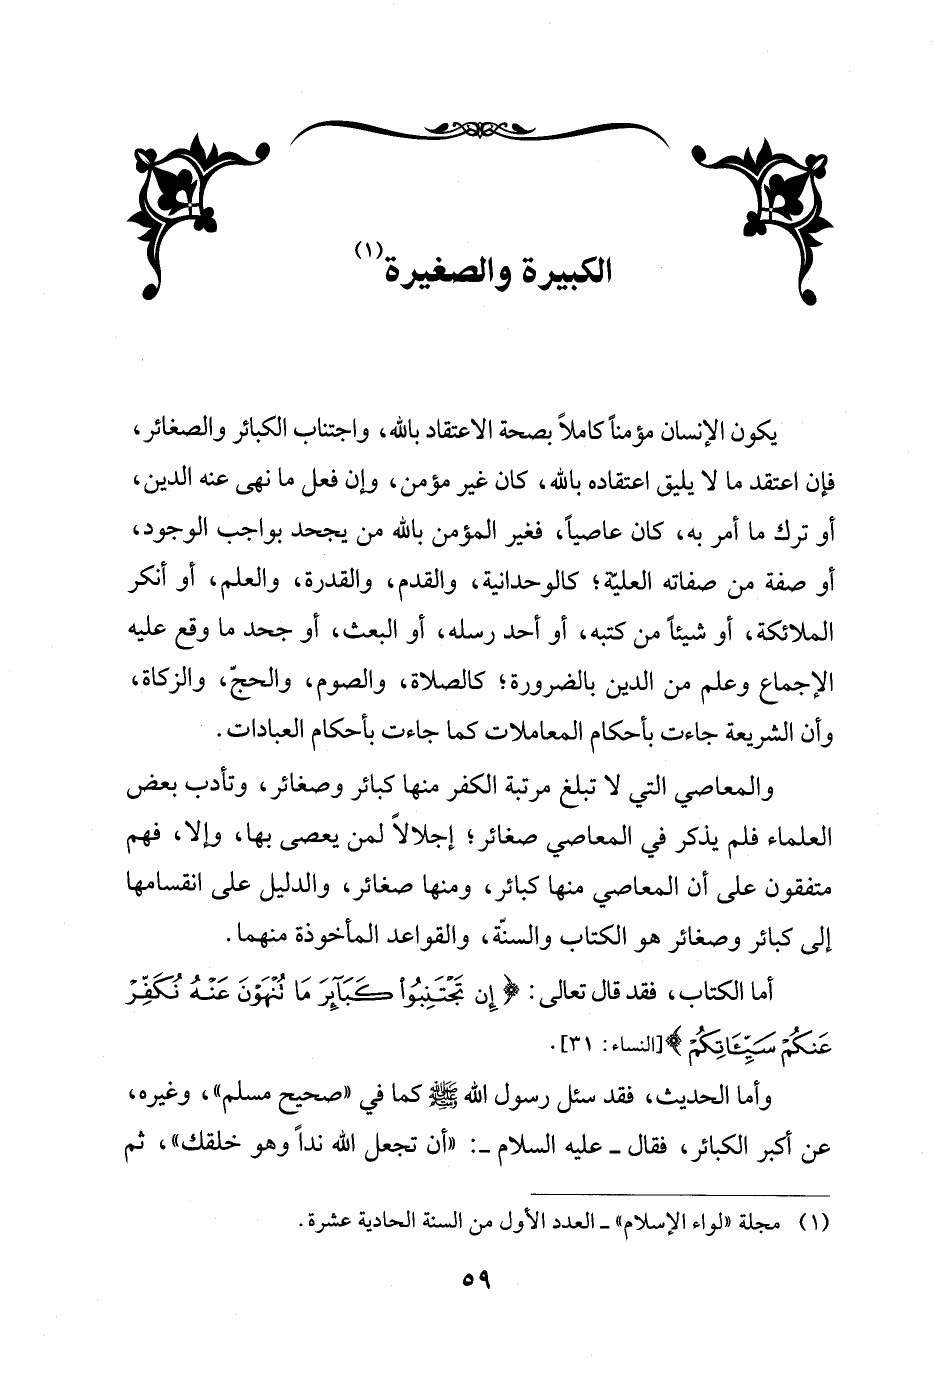 الكبيرة والصغيرة(١)
يكون الإنسان مؤمناً كاملاً بصحة الاعتقاد بالله، واجتناب الكبائر والصغائر،
فإن اعتقد ما لا يليق اعتقاده بالله، كان غير مؤمن، وإن فعل ما نهى عنه الدين،
أو ترك ما أمر به، كان عاصياً، فغير المؤمن بالله من يجحد بواجب الوجود،
أو صفة من صفاته العليّة؛ كالوحدانية، والقدم، والقدرة، والعلم، أو أنكر
الملائكة، أو شيئاً من كتبه، أو أحد رسله، أو البعث، أو جحد ما وقع عليه
الإجماع وعلم من الدين بالضرورة؛ كالصلاة، والصوم، والحجّ، والزكاة،
وأن الشريعة جاءت بأحكام المعاملات كما جاءت بأحكام العبادات.
والمعاصي التي لا تبلغ مرتبة الكفر منها كبائر وصغائر، وتأدب بعض
العلماء فلم يذكر في المعاصي صغائر؛ إجلالاً لمن يعصى بها، وإلا، فهم
متفقون على أن المعاصي منها كبائر، ومنها صغائر، والدليل على انقسامها
إلى كبائر وصغائر هو الكتاب والسنّة، والقواعد المأخوذة منهما.
أما الكتاب، فقد قال تعالى: ﴿إِن تَجْتَنِبُوا۟ كَبَآئِرَ مَا نُنْهَوْنَ عَنْهُ نُكَفِّرْ
عَنكُمْ سَيِّـَٔاتِكُمْ﴾[النساء: ٣١].
وأما الحديث، فقد سئل رسول الله ﷺ كما في «صحيح مسلم»، وغيره،
عن أكبر الكبائر، فقال ـ عليه السلام ـ: «أن تجعل الله نداً وهو خلقك»، ثم
(١) مجلة «لواء الإسلام» ـ العدد الأول من السنة الحادية عشرة.
٥٩